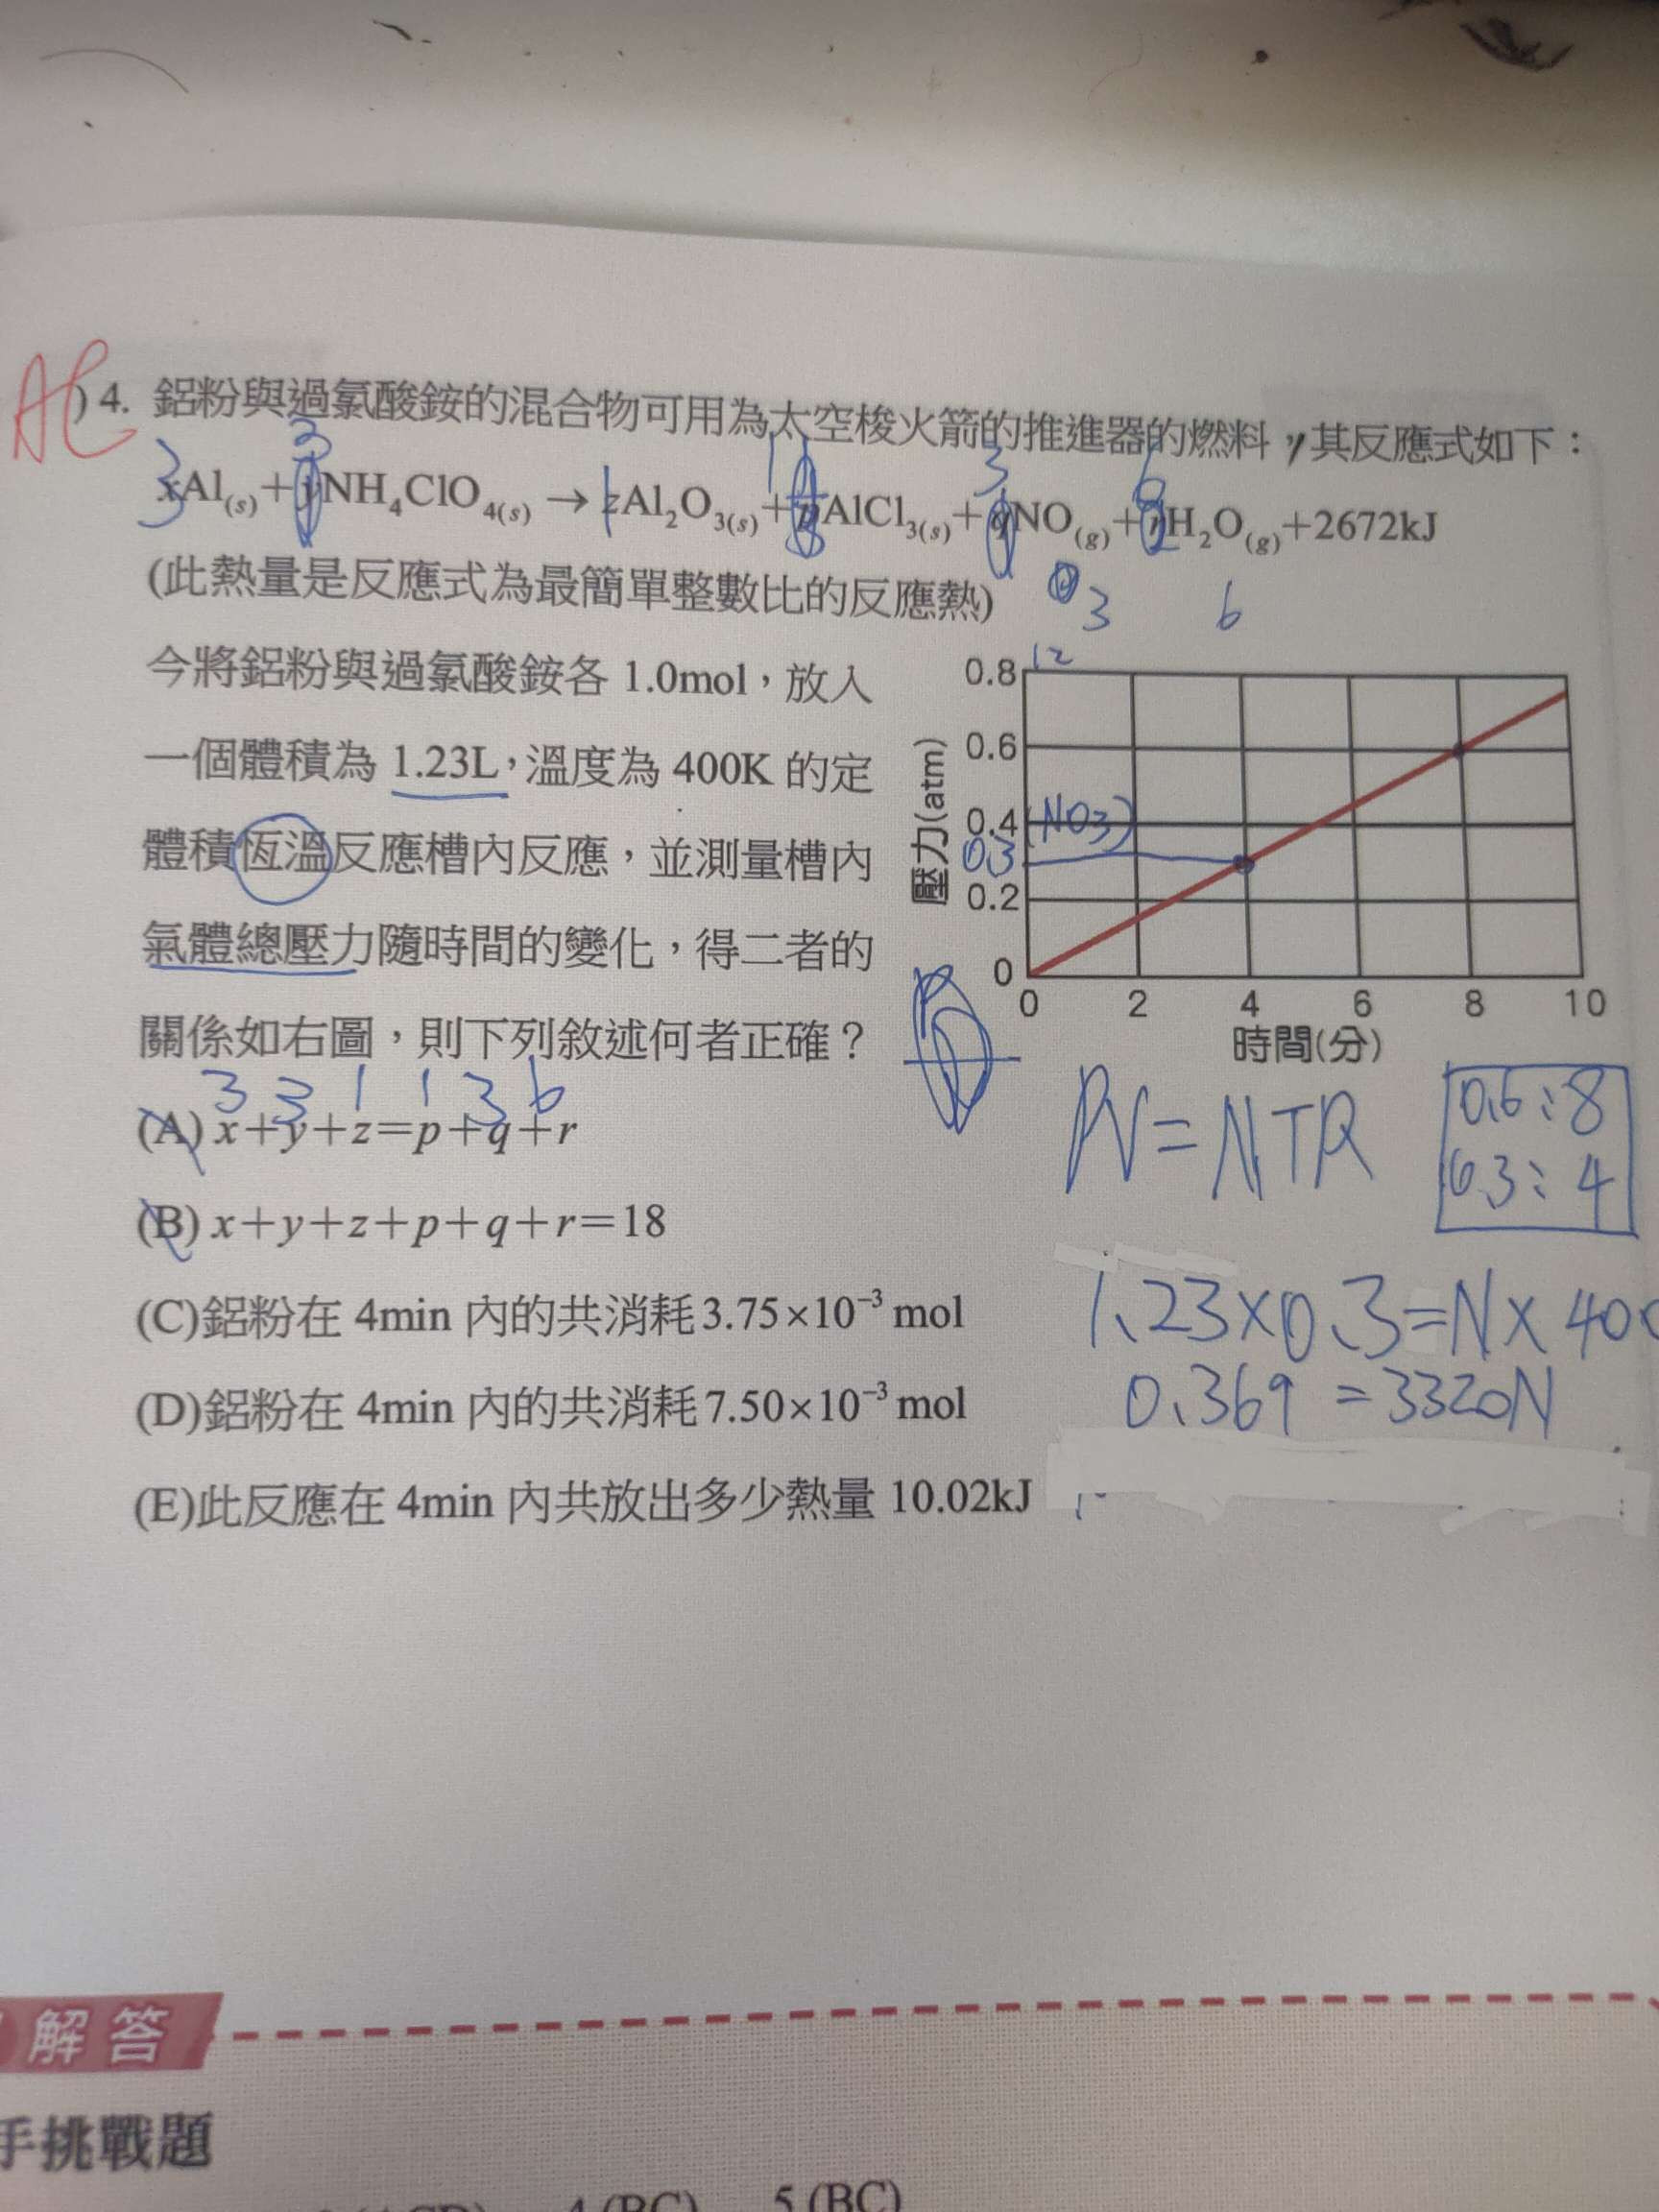 AC
)4. 鋁粉與過氯酸銨的混合物可用為太空梭火箭的推進器的燃料，其反應式如下：
3 3 1 1 3 6
xAl(s)+yNH₄ClO₄(s) → zAl₂O₃(s)+pAlCl₃(s)+qNO(g)+rH₂O(g)+2672kJ
(此熱量是反應式為最簡單整數比的反應熱)
3 6
今將鋁粉與過氯酸銨各 1.0mol，放入
一個體積為 1.23L，溫度為 400K 的定
體積恆溫反應槽內反應，並測量槽內
氣體總壓力隨時間的變化，得二者的
關係如右圖，則下列敘述何者正確？
12
壓力(atm)
0.8
0.6
0.4
(NO3)
0.3
0.2
0
0 2 4 6 8 10
時間(分)
3 3 1 1 3 6
(A) x+y+z=p+q+r
(B) x+y+z+p+q+r=18
(C)鋁粉在 4min 內的共消耗3.75×10⁻³ mol
(D)鋁粉在 4min 內的共消耗7.50×10⁻³ mol
(E)此反應在 4min 內共放出多少熱量 10.02kJ
PV=NTR
0.6:8
0.3:4
1.23×0.3=N×400
0.369=3320N
解答
手挑戰題
4.(BC) 5.(BC)